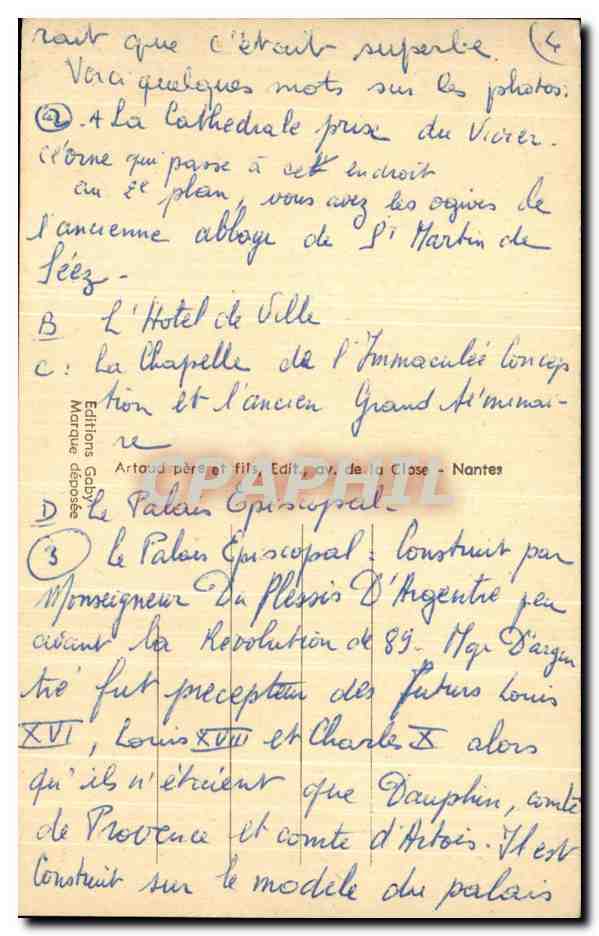 rait que c'était superbe. (4
Voici quelques mots sur les photos:
(2). A La Cathedrale prise du Vivier.
(l'orne qui passe à cet endroit
au 2e plan, vous avez les ogives de
l'ancienne abbaye de St Martin de
Séez -
B L'Hotel de Ville
C: La Chapelle de l'Immaculée Concep
tion et l'ancien Grand Séminai-
re
Editions Gaby
Marque déposée
Artaud père et fils, Edit., av. de la Close - Nantes
CPAPHIL
D Le Palais Episcopal -
(3) Le Palais Episcopal : Construit par
Monseigneur Du Plessis D'Argentré peu
avant la Révolution de 89. Mgr D'argen
tré fut precepteur des futurs Louis
XVI, Louis XVIII et Charles X alors
qu'ils n'étaient que Dauphin, comte
de Provence et comte d'Artois. Il est
Construit sur le modele du palais